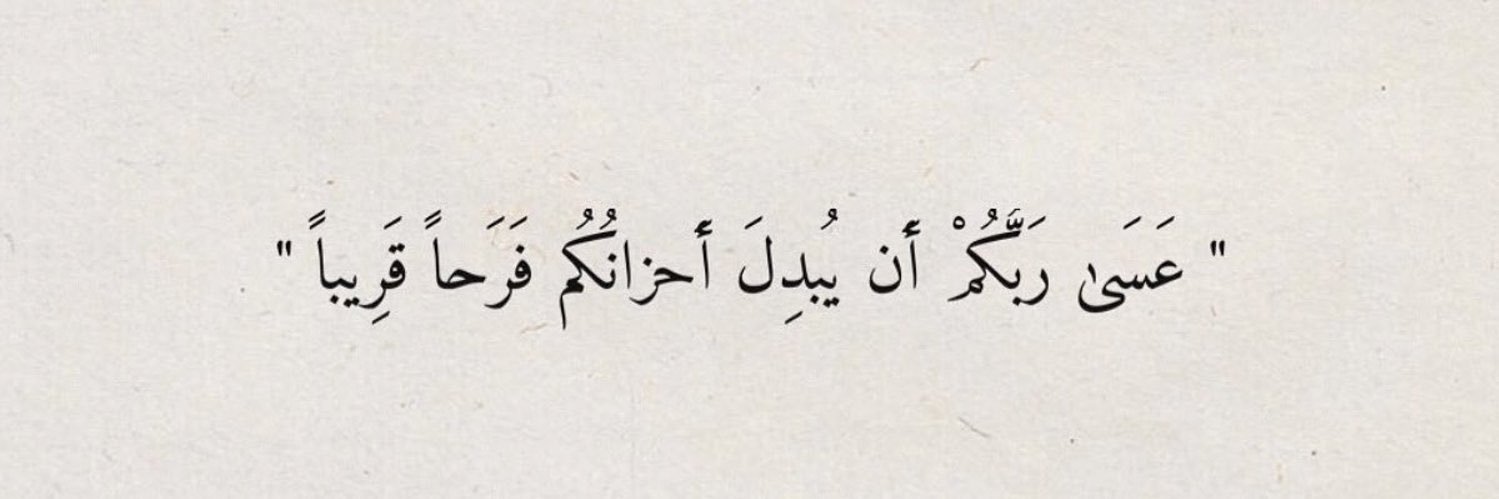 " عَسَىٰ رَبَّكُمْ أَن يُبدِلَ أَحزانُكُم فَرَحاً قَرِيباً "